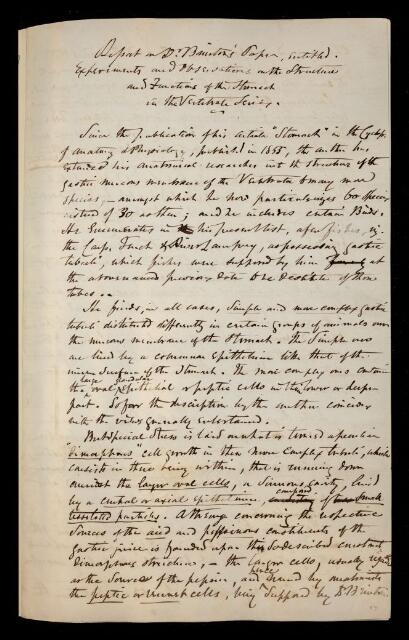 Report on Dr. Brinton's Paper, entitled.
Experiments and Observations on the Structure
and Functions of the Stomach
in the Vertebrate Series.
Since the publication of his article "Stomach" in the Cyclop.
of anatomy & Physiology, published in 1855, the author has
extended his anatomical researches into the structure of the
gastric mucous membrane of the Vertebrata to many more
species, - amongst which he now particularizes 60 species
instead of 30 as then; and he includes certain Birds.
He Enumerates in his present list, a few fishes, viz.
the Carp, Tench & River Lamprey, as possessing gastric
tubuli, which fishes were supposed by him at
the aforenamed previous date to be destitute of those
tubes. -
He finds, in all cases, simple and more complex gastric
tubuli distributed differently in certain groups of animals over
the mucous membrane of the Stomach. The simple ones
are lined by a columnar Epithelium like that of the
inner surface of the Stomach. The more complex ones contain
the large oval glandular Epithelial or peptic cells in their lower or deeper
part. So far the description by the author coincides
with the views generally entertained.
But special Stress is laid on what is termed a peculiar
"dimorphous" cell growth in these more complex tubuli, which
consists in there being within, that is running down
amidst the larger oval cells, a sinuous cavity, lined
by a central or axial epithelium, composed of
. A theory concerning the respective
Sources of the acid and pepsinous constituents of the
gastric juice is founded upon this so described constant
dimorphous structure, - the larger cells, usually regarded
as the Source of the pepsin, and hence named by anatomists
the peptic or rennet cells, being supposed by Dr. Brinton